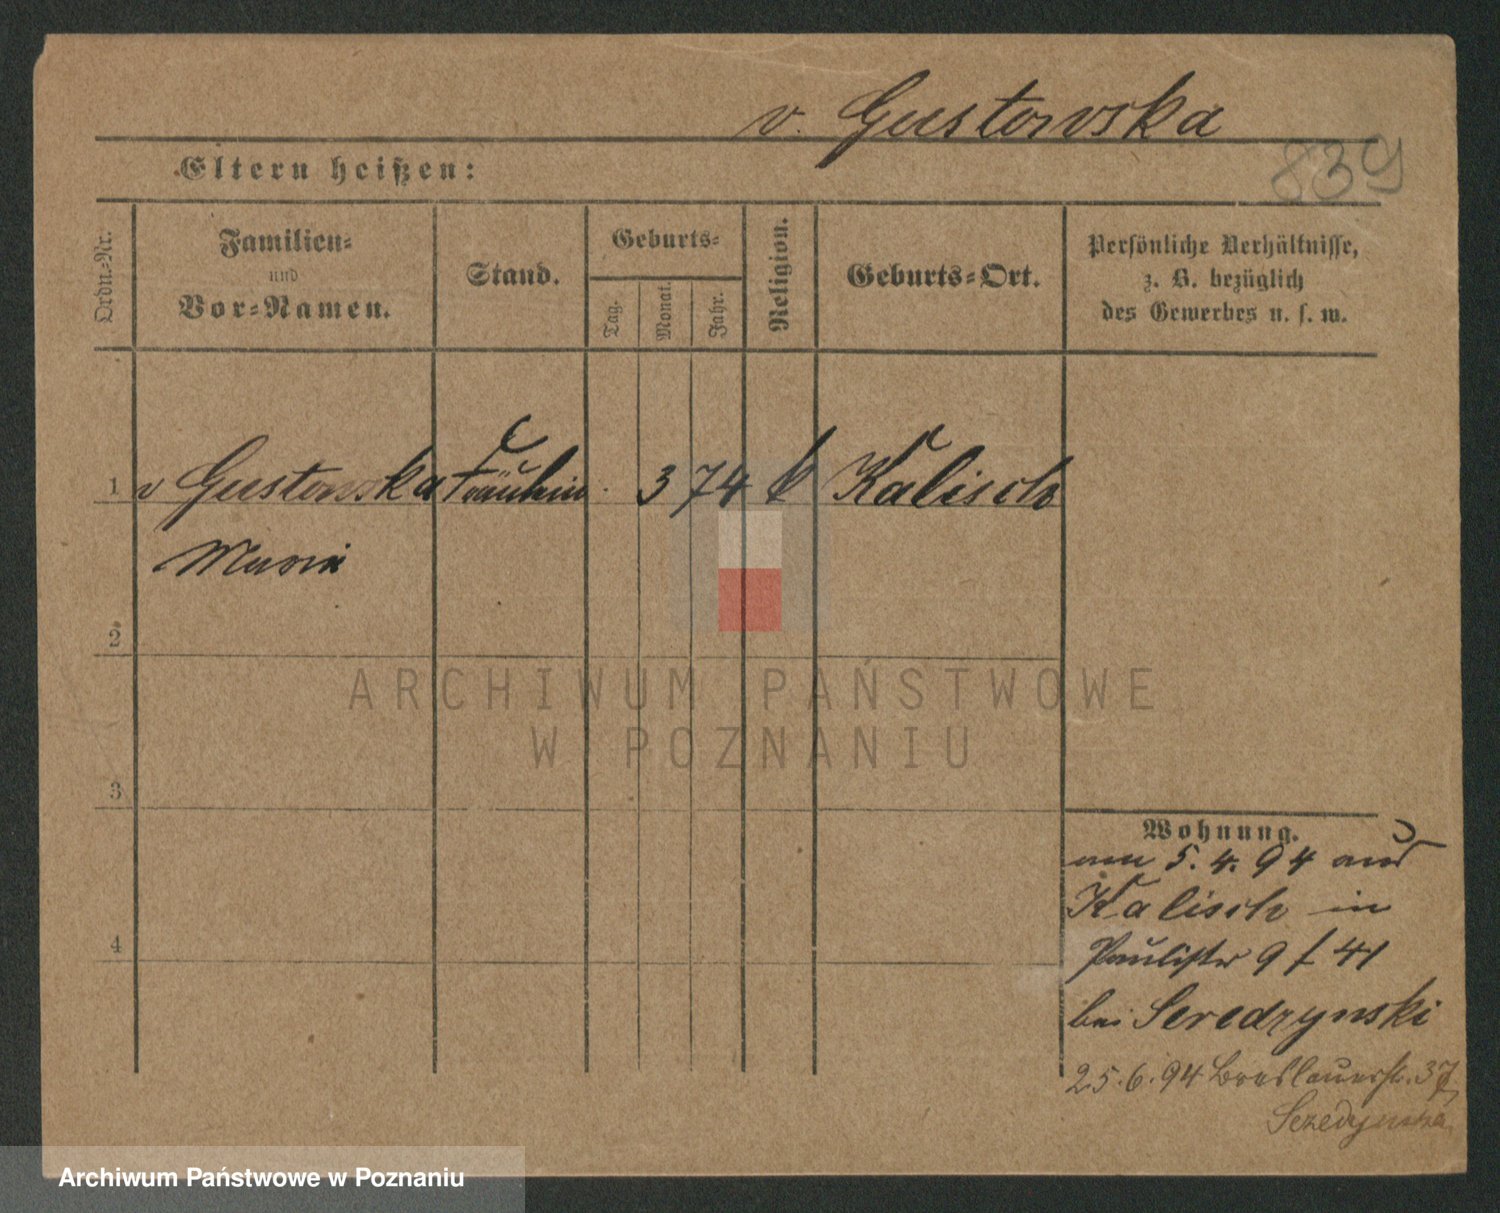 v. Gustowska
839
Eltern heißen:
Ordn.-Nr.
Familien-
und
Vor-Namen.
Stand.
Geburts-
Tag.
Monat.
Jahr.
Religion.
Geburts-Ort.
Persönliche Verhältnisse,
z. B. bezüglich
des Gewerbes u. s. w.
1 v Gustowska Fräulein 3 74 k Kalisch
Maria
2
3
4
Wohnung.
am 5. 4. 94 aus
Kalisch in
Paulistr 9 f 41
bei Seredzynski
25. 6. 94 Breslauerstr. 37
ARCHIWUM PAŃSTWOWE
W POZNANIU
Archiwum Państwowe w Poznaniu